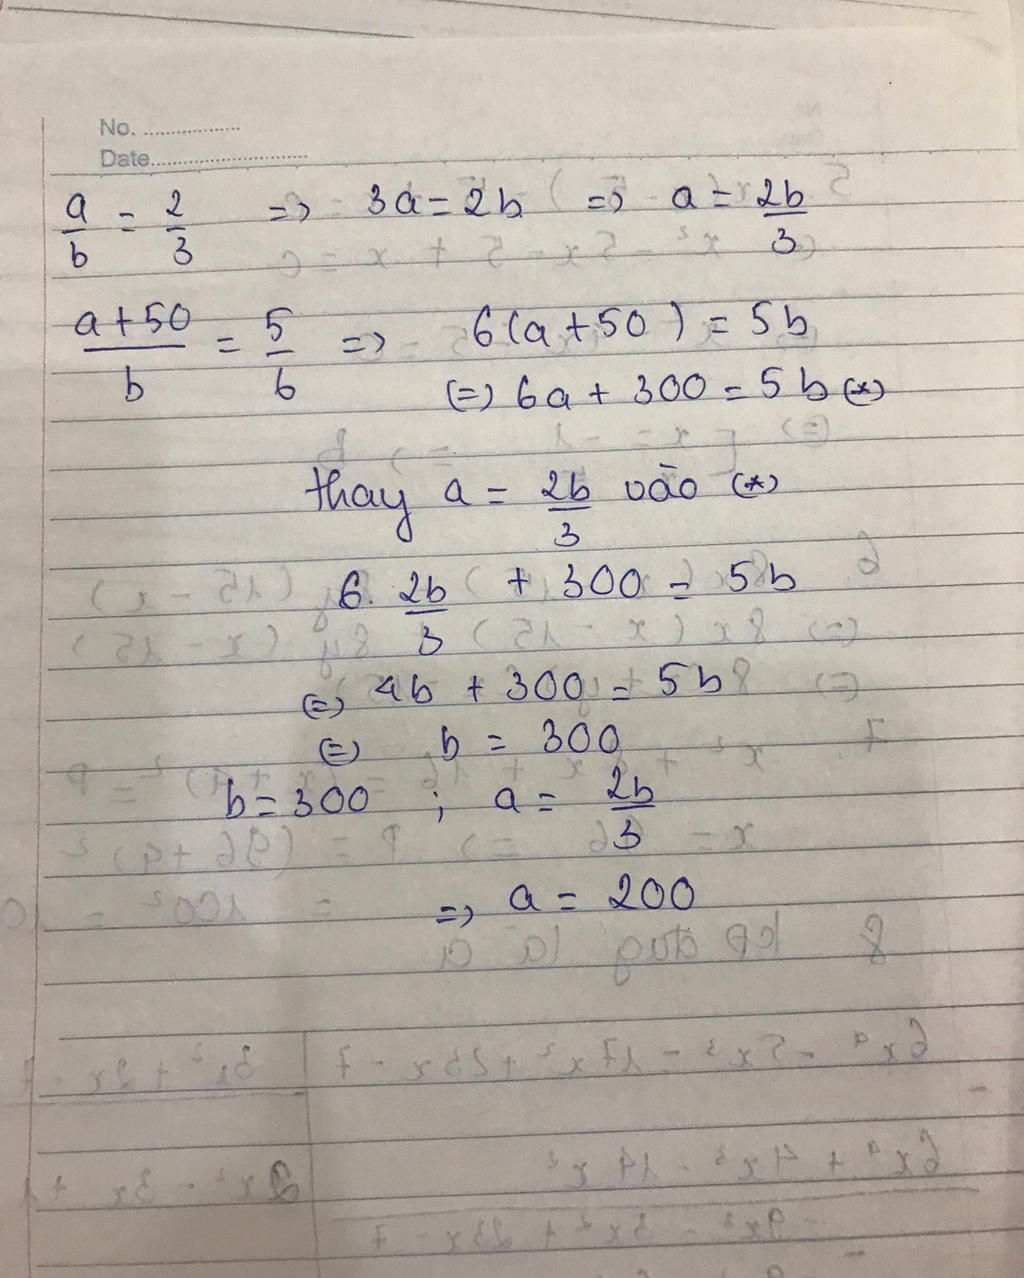 No. ..................
Date.............................
a/b = 2/3 => 3a = 2b => a = 2b/3
(a+50)/b = 5/6 => 6(a+50) = 5b
(=) 6a + 300 = 5b (*)
thay a = 2b/3 vào (*)
6. 2b/3 + 300 = 5b
(=) 4b + 300 = 5b
(=) b = 300
b = 300 ; a = 2b/3
=> a = 200